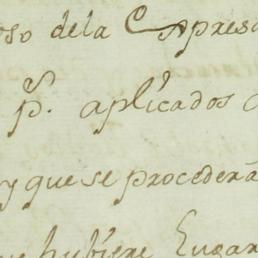 oso dela Expresa
p.s aplicados
y que se procederá
hubiere Lugar